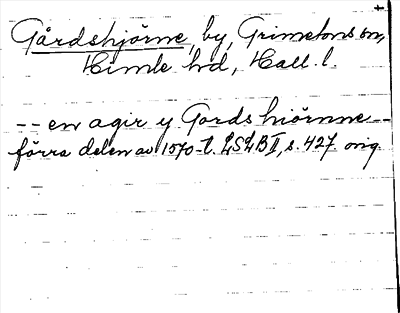 Gårdshjörne, by, Grimetons sn,
Himle hd, Hall. l.
-- en agir y Gords hiörnne --
förra delen av 1570-t. LSLB II, s. 427 orig.